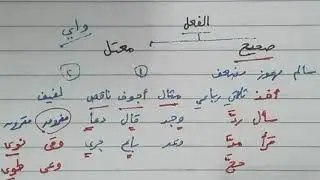 الفعل واي
صحيح معتل
سالم مهموز مضعف ① ②
أخذ ثلاثي رباعي مثال أجوف ناقص لفيف
سأل ردّ وجد قال دعا مفروق مقرون
قرأ مدّ وعد باع جرى وقى نوى
حجّ وعى طوى